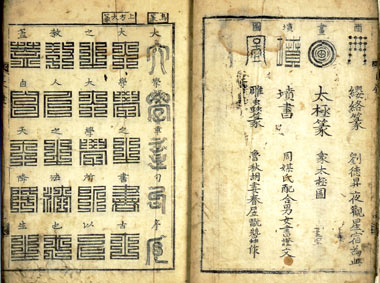 纓絡篆 劉德昇夜觀星宿為此
太極篆 象太極圖
墳書 周媒氏配合男女書證文
雕虫篆 魯秋胡妻春居翫蠶作
上方大篆
大學章句序
大學之書古
之大學所以
教人之法也
蓋自天降生